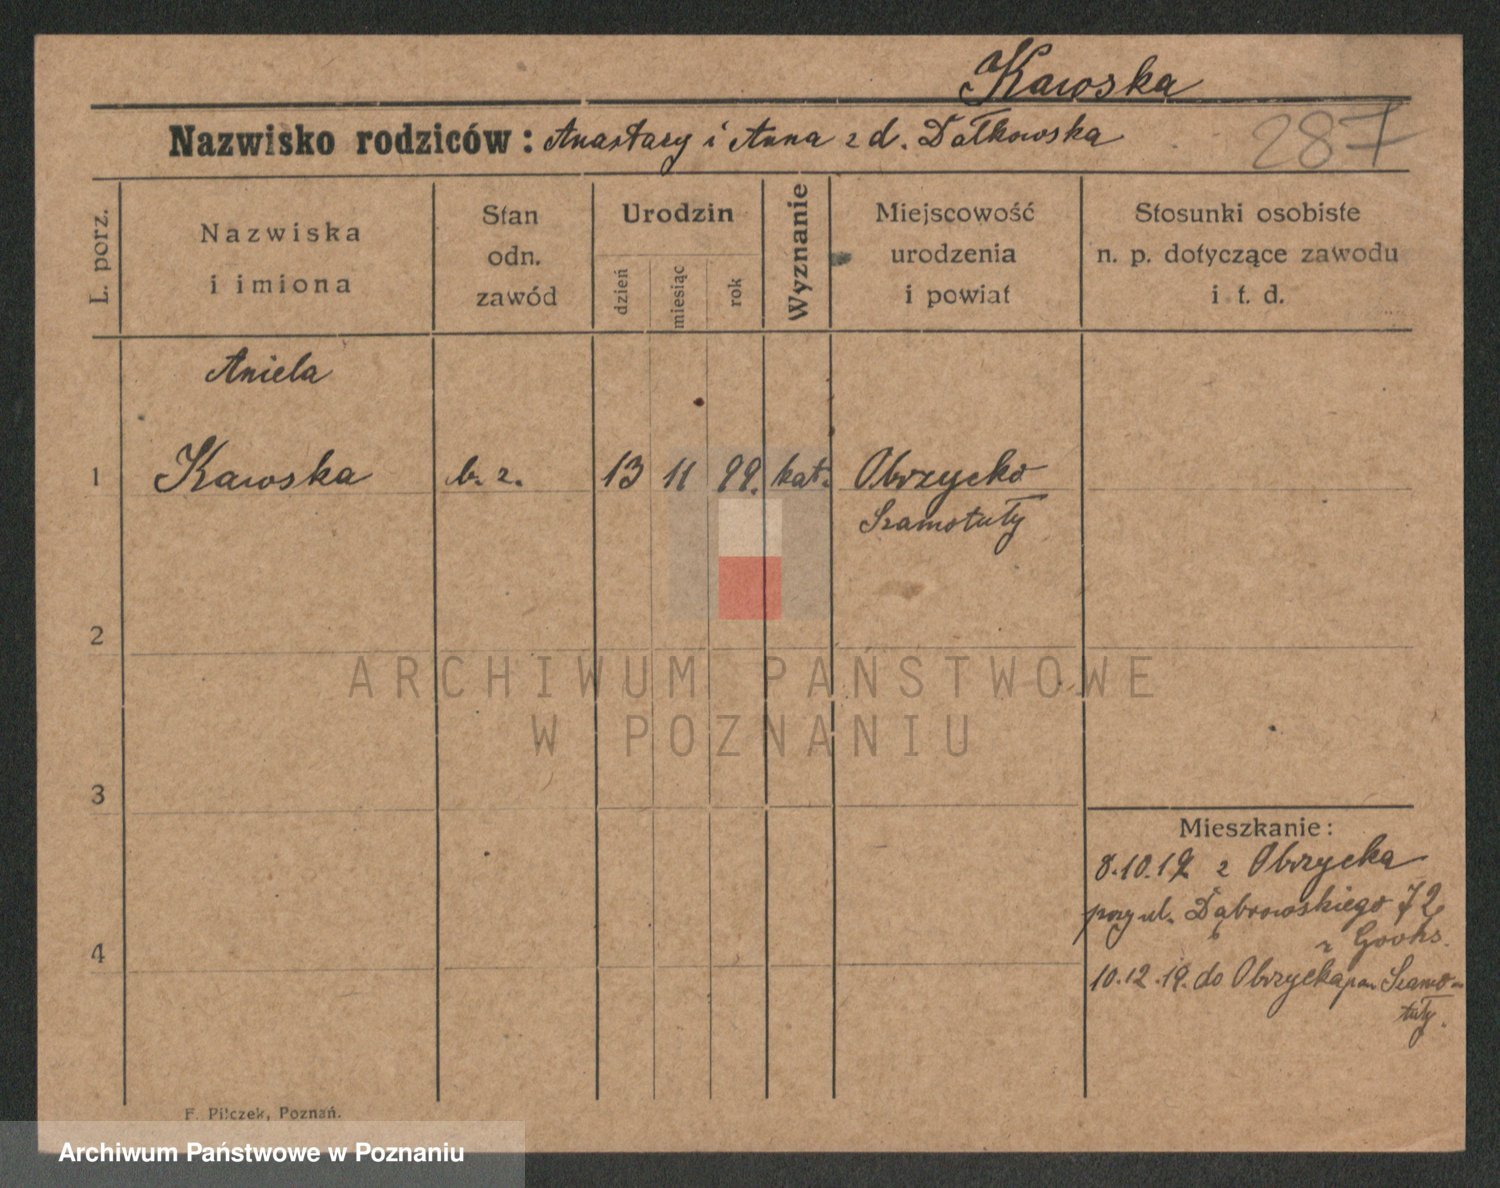 Kawska
Nazwisko rodziców: Anastazy i Anna z d. Dałkowska
287
L. porz.
Nazwiska
i imiona
Stan
odn.
zawód
Urodzin
dzień
miesiąc
rok
Wyznanie
Miejscowość
urodzenia
i powiat
Stosunki osobiste
n. p. dotyczące zawodu
i t. d.
Aniela
1 Kawska b. z. 13 11 99. kat. Obrzycko
Szamotuły
2
ARCHIWUM PAŃSTWOWE
W POZNANIU
3
Mieszkanie:
8.10.19 z Obrzycka
przy ul. Dąbrowskiego 72
z
4
10.12.19. do Obrzycka pow Szamo-
tuły.
F. Pilczek, Poznań.
Archiwum Państwowe w Poznaniu